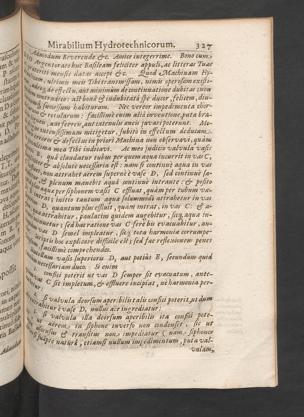 Mirabilium Hydrotechnicorum. 327
Admodum Reverende &c. Amice integerrime. Bono cum
Argentorato huc Basileam feliciter appuli, ac litteras Tuas
mensis datas accepi &c. Quod Machinam Hy-
ultimis meis Tibi transmissam, nimis operosam existi-
de effectu, aut minimum de continuatione dubitas inon
ast bonâ & indubitatâ spe ducor, feliciter, diu-
successisse habituram. Nec vereor impedimenta chor-
& rotularum: facillimè enim aliâ inventione, puta bra-
aut ferreis, aut extensis aneis juvari poterunt.
mitigetur, subitò in effectum deductam,
& defectum in priori Machina non observavi, quam
mea Tibi indicavi. At meo judicio valvula vasis
quâ claudatur tubus per quem aqua incurrit in vas C,
& absolutè necessaria est: nam si continuò aqua in vas
non attrahet aërem superiùs vase D, sed continuè la-
& plenum manebit aquâ continuè intrante: & posito
aqua per siphonem vasis C effluat, quàm per tubum va-
initio tantùm aqua solummodò attrahetur in vas
D, quantum plus effluit, quàm intrat, in vas C: & a-
attrahitur, paulatim quidem augebitur, sicq; aqua in-
sed hac ratione vas C ferè bis evacuabitur, an-
D semel impleatur, sicq; tota harmonia corrumpe-
hoc explicare difficile est; sed fac reflexionem penes
facillimè comprehendes.
vasis superioris D, aut potiùs E, secundum quid
necessariam duco: Si enim
consisti poterit ut vas D semper sit evacuatum, ante-
C sit impletum, & effluere incipiat, ut harmonia per-
si valvula deorsum aperibilis talis consisi poterit, ut dum
è vase D, nullus aër ingrediatur;
si valvula illa deorsum aperibilis ita consisi pote-
aërem in siphone inverso non condenset, sic ut
discursus & transitus non impediatur (nam siphonem
suâpte naturâ, etiamsi nullum impedimentum, puta val-
vulam,